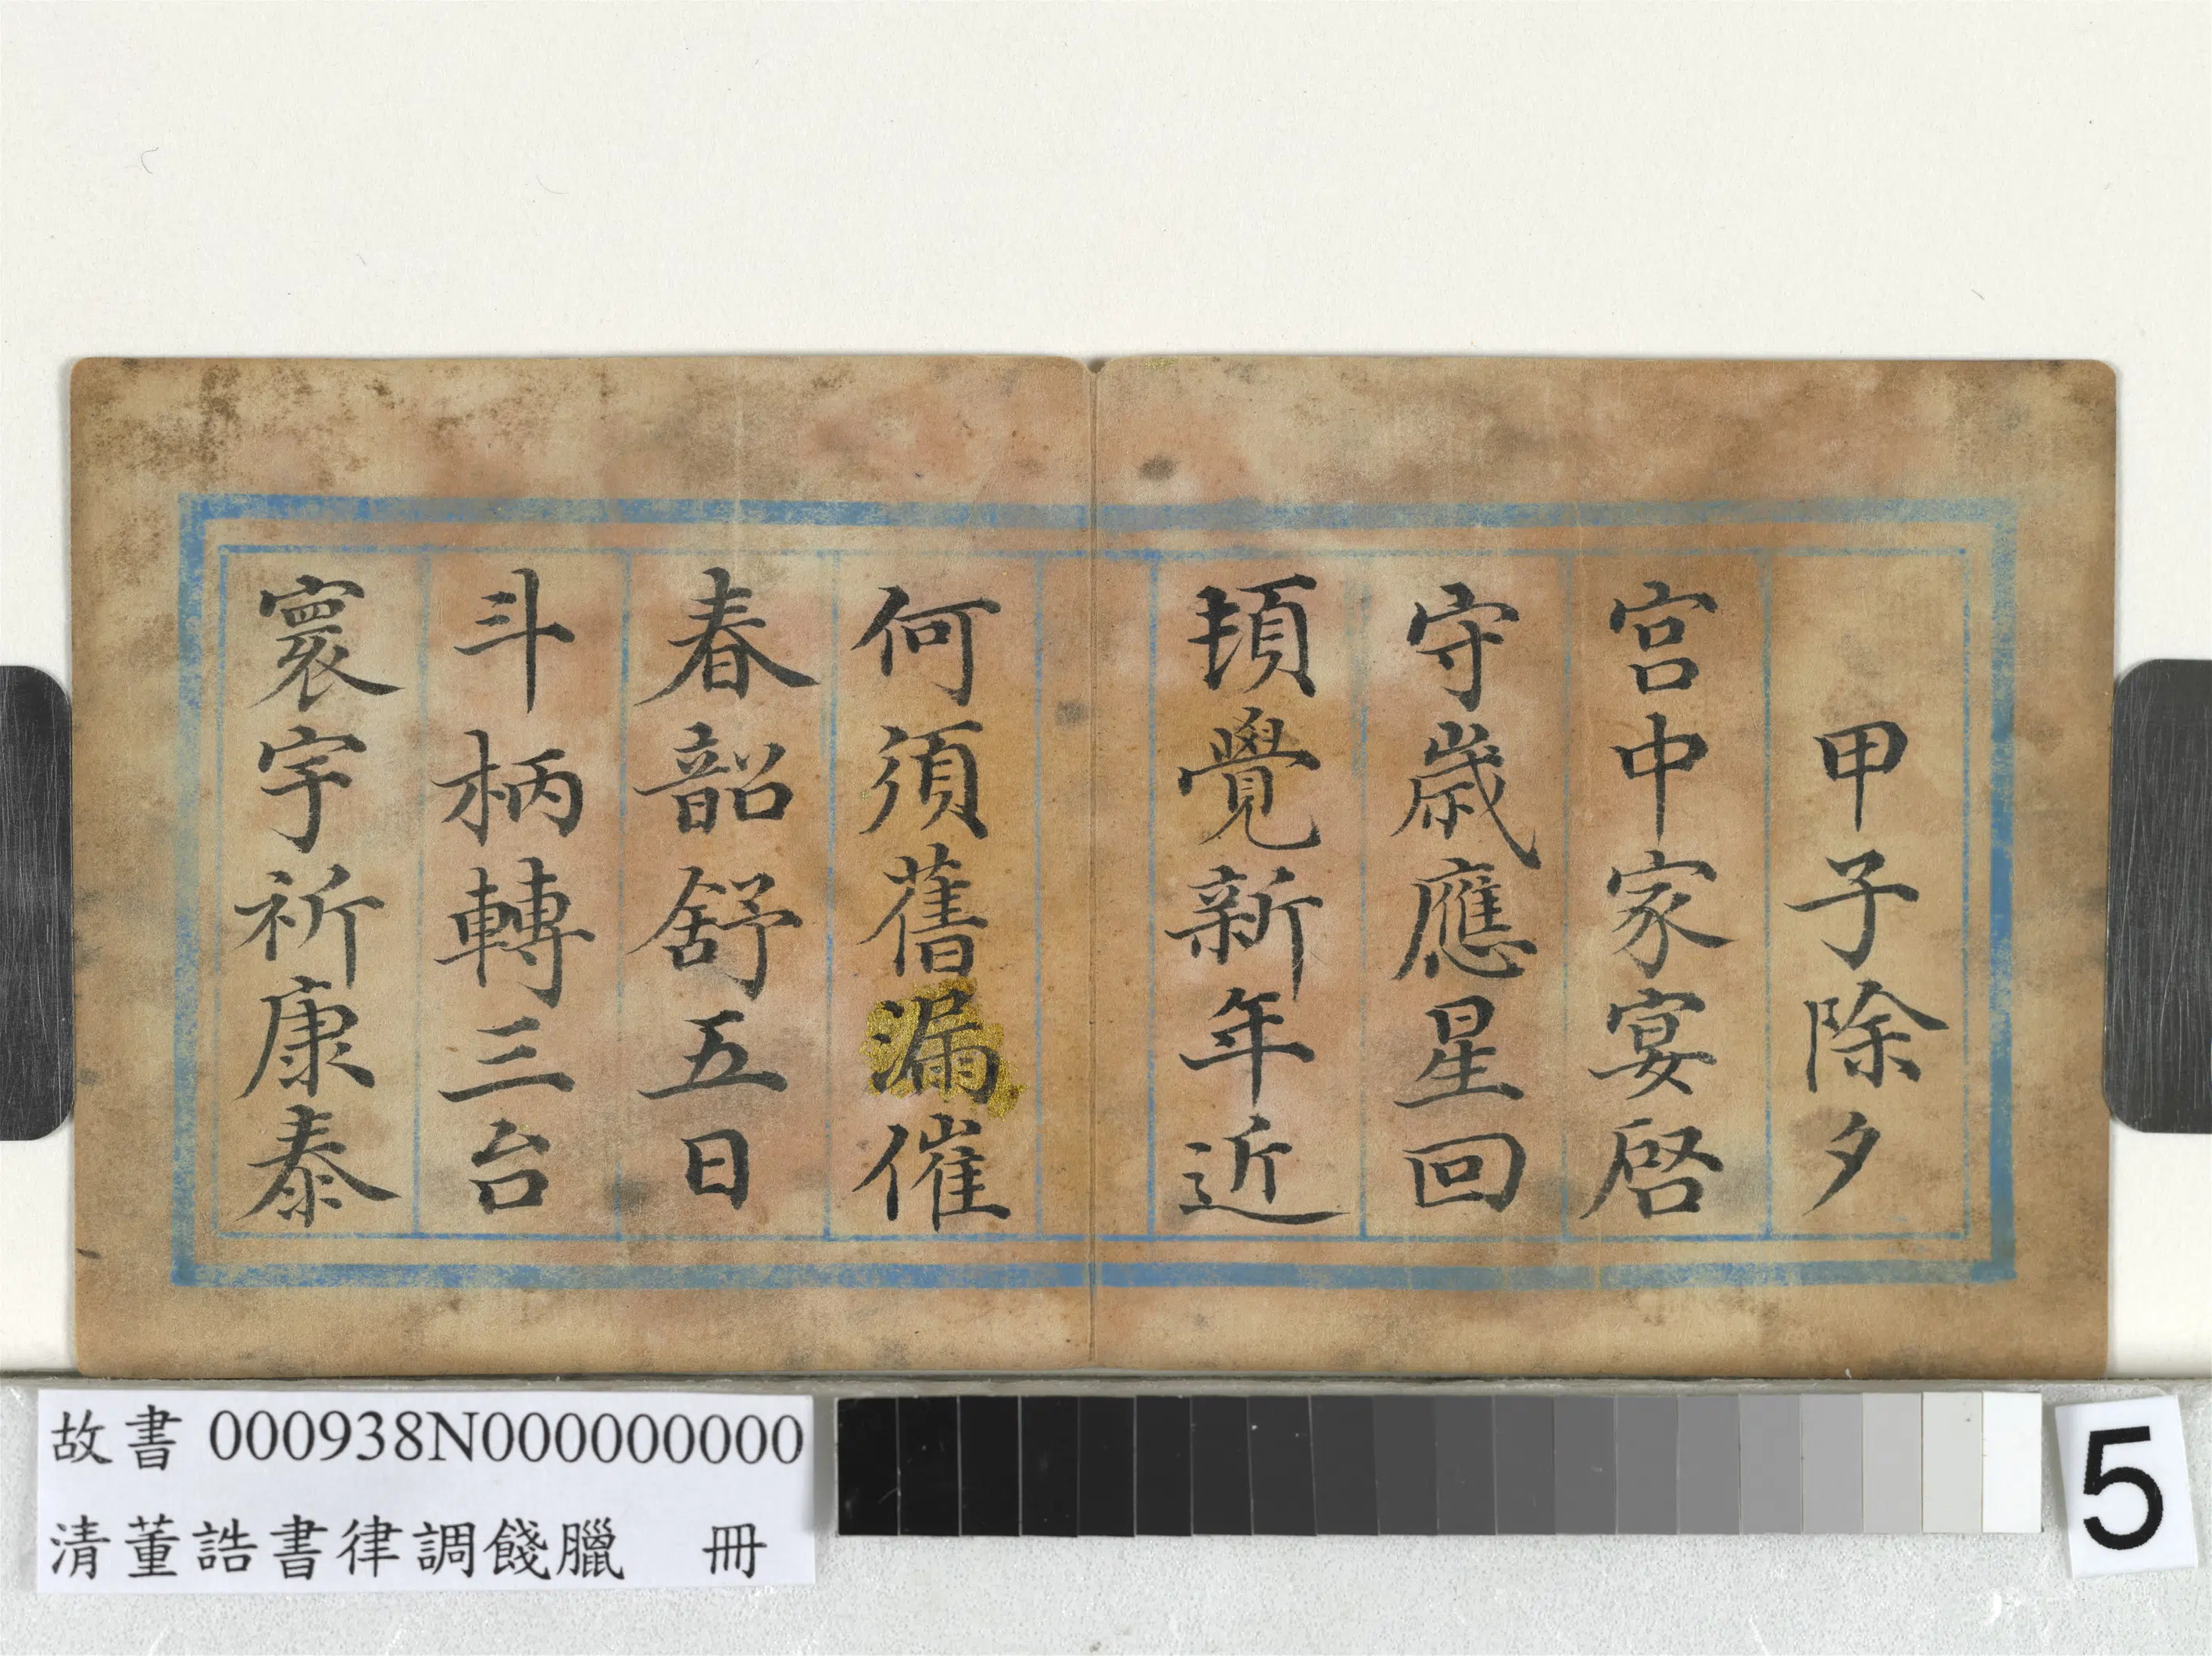 甲子除夕
宫中家宴啓
守歲應星回
頓覺新年近
何須舊漏催
春韶舒五日
斗柄轉三台
寰宇祈康泰
故書 000938N000000000
清董誥書律調餞臘 冊
5